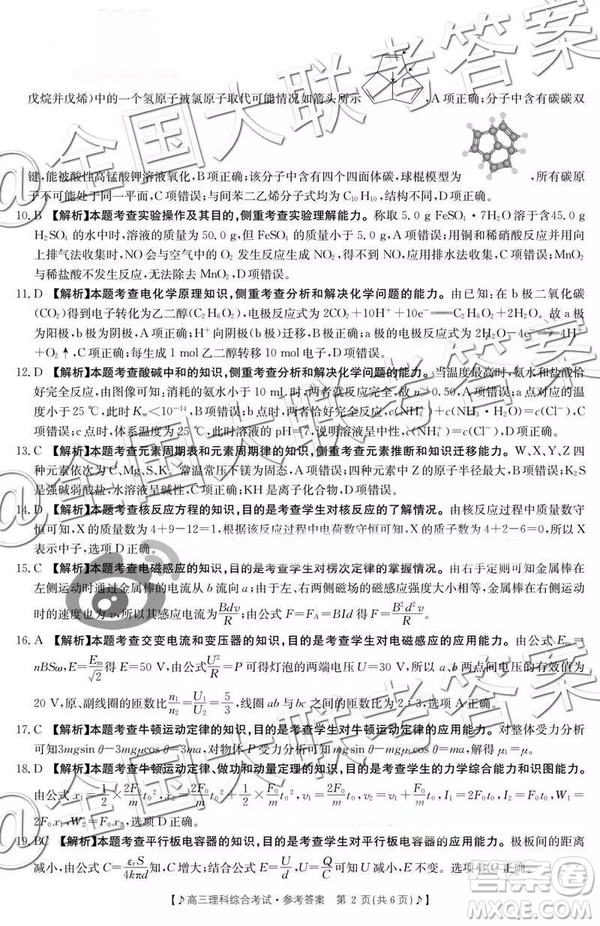 戊烷并戊烯)中的一个氢原子被氯原子取代可能情况如箭头所示 ,A项正确;分子中含有碳碳双
键,能被酸性高锰酸钾溶液氧化,B项正确;该分子中含有四个四面体碳,球棍模型为 ,所有碳原
子不可能处于同一平面,C项错误;与间苯二乙烯分子式均为C₁₀H₁₀,结构不同,D项正确。
10.B 【解析】本题考查实验操作及其目的,侧重考查实验理解能力。称取5.0 g FeSO₄·7H₂O溶于含45.0 g
H₂SO₄的水中时,溶液的质量为50.0 g,但FeSO₄的质量小于5.0 g,A项错误;用铜和稀硝酸反应并用向
上排气法收集时,NO与空气中的O₂发生反应生成NO₂,应用排水法收集,C项错误;
与稀盐酸不能发生反应,无法除去,D项错误。
11.D 【解析】本题考查电化学原理知识,侧重考查分析和解决化学问题的能力。由已知:在b极二氧化碳
(CO₂)得到电子生成乙二醇,b的电极反应式为2CO₂+10H⁺+10e⁻══C₂H₆O₂+2H₂O。故a极为
阳极,b极为阴极,A项正确;H⁺向阴极移动,C项正确;a极的电极反应式为2H₂O−4e⁻══4H⁺
+O₂↑,B项正确;每生成1 mol乙二醇转移10 mol电子,D项错误。
12.D 【解析】本题考查酸碱中和的知识,侧重考查分析和解决化学问题的能力。当温度最高时,氨水和盐酸恰
好完全反应,由图像可知:消耗的氨水小于10 mL时,两者就反应完全。故n>0.50,A项正确;a点对应的温
度小于25 ℃,此时Kw<10⁻¹⁴,B项正确;b点时,体系温度最高,两者恰好完全反应,C项正确;c点时,对应的温
度等于25 ℃,此时溶液的pH=7,说明溶液呈中性,c(NH₄⁺)+c(NH₃·H₂O)≠c(Cl⁻),c(NH₄⁺)=c(Cl⁻),D
项错误。
13.C 【解析】本题考查元素周期表和元素周期律的知识,侧重考查元素推断和知识迁移能力。W、X、Y、Z四
种元素依次为C、Mg、S、K。常温常压下镁为固态,A项错误;四种元素中Z的原子半径最大,B项错误;K₂S
是强碱弱酸盐,水溶液呈碱性,C项正确;KH是离子化合物,D项错误。
14.D 【解析】本题考查核反应方程的知识,目的是考查学生对核反应的了解情况。由核反应过程中质量数守恒
可知,X的质量数为4+9−12=1,根据核反应过程中电荷数守恒可知,X的质子数为4+2−6=0,所以X
表示中子,选项D正确。
15.C 【解析】本题考查电磁感应的知识,目的是考查学生对楞次定律的掌握情况。由右手定则可知金属棒在
左侧运动时通过金属棒的电流从b流向a;由于左、右两侧磁场的磁感应强度大小相等,金属棒在左、右侧运动
时的速度相等,所以其感应电流大小均为Bdv/R;由公式F=F_A=BId得F=B²d²v/R,选项C正确。
16.A 【解析】本题考查交变电流和变压器的知识,目的是考查学生对电磁感应的应用能力。由公式Eₘ=
nBSω,E=Eₘ/√2得E=50 V,由公式U²/R=P可得灯泡的两端电压U=30 V,所以a、b之间的电压为
20 V,原、副线圈的匝数比n₁/n₂=U₁/U₂=5/3,线圈ab与bc之间的匝数比为2:3,选项A正确。
17.C 【解析】本题考查牛顿运动定律的知识,目的是考查学生对牛顿运动定律的应用能力。对整体受力分析
可知3mgsin θ−3mgμcos θ=3ma,对物体P受力分析可知mgsin θ−mgμ₁cos θ=ma,解得μ₁=μ。
18.D 【解析】本题考查牛顿运动定律、做功和动量定理的知识,目的是考查学生的力学综合能力和识图能力。
由公式x₁=1/2×2F₀/m t₀²,x₂=2F₀/m t₀²+1/2×F₀/m t₀²,v₁=2F₀/m t₀,v₂=2F₀/m t₀+F₀/m t₀,I₁=2F₀t₀,I₂=F₀t₀,W₁=
2F₀x₁,W₂=F₀x₂,选项D正确。
19.BC 【解析】本题考查平行板电容器的知识,目的是考查学生对平行板电容器的应用能力。极板间的距离
减小,由公式C=εᵣS/4πkd,E=U/d,U=Q/C可知U变小,E不变,选项B、C正确。
【♪高三理科综合考试·参考答案 第2页(共6页)♪】
@全国大联考答案